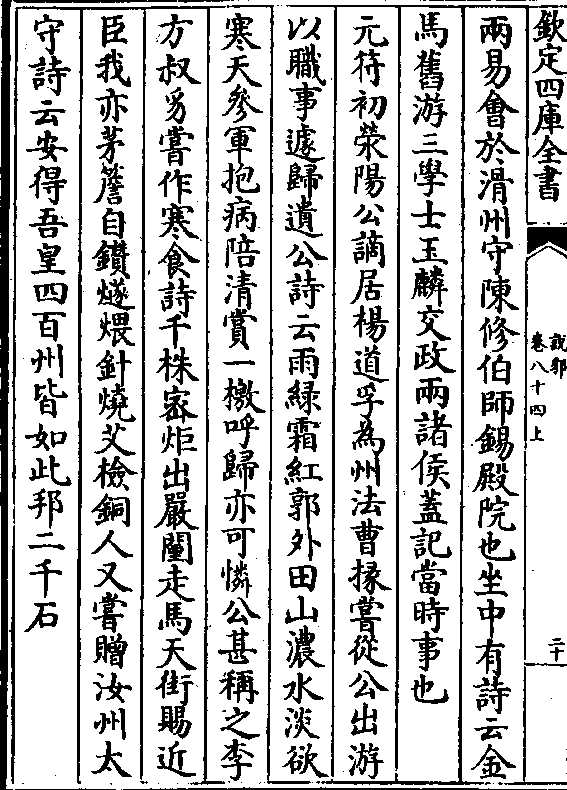 欽定四庫全書
說郛
卷八十四上
二十
兩易會於滑州守陳修伯師錫殿院也坐中有詩云金
馬舊游三學士玉麟交政兩諸侯蓋記當時事也
元符初滎陽公謫居楊道孚為州法曹掾嘗從公出游
以職事遽歸遺公詩云雨緑霜紅郭外田山濃水淡欲
寒天參軍抱病陪清賞一檄呼歸亦可憐公甚稱之李
方叔豸嘗作寒食詩千株宻炬出嚴闉走馬天街賜近
臣我亦茅簷自鑽燧煨針燒艾檢銅人又嘗贈汝州太
守詩云安得吾皇四百州皆如此邦二千石